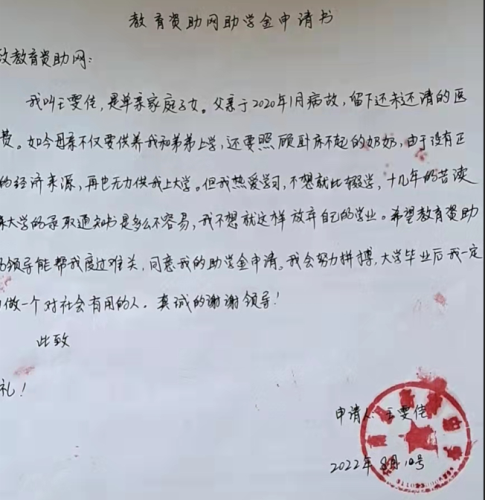 教育资助网助学金申请书
致教育资助网：
我叫王雯佬，是单亲家庭子女。父亲于2020年1月病故，留下还未还清的医
费。如今母亲不仅要供养我和弟弟上学，还要照顾卧床不起的奶奶，由于没有正
的经济来源，再也无力供我上大学。但我热爱学习，不想就此辍学，十几年的苦读
来大学的录取通知书是多么不容易，我不想就这样放弃自己的学业。希望教育资助
的领导能帮我度过难关，同意我的助学金申请。我会努力拼搏，大学毕业后我一定
做一个对社会有用的人。真诚的谢谢领导！
此致
礼！
申请人：王雯佬
2022年8月10号